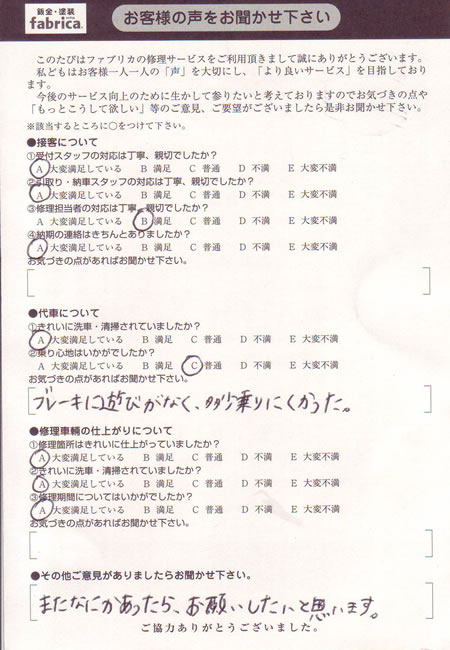 鈑金・塗装
fabrica.
お客様の声をお聞かせ下さい
このたびはファブリカの修理サービスをご利用頂きまして誠にありがとうございます。
私どもはお客様一人一人の「声」を大切にし、「より良いサービス」を目指しており
ます。
今後のサービス向上のために生かして参りたいと考えておりますのでお気づきの点や
「もっとこうして欲しい」等のご意見、ご要望がございましたら是非お聞かせ下さい。
※該当するところに○をつけて下さい。
●接客について
①受付スタッフの対応は丁寧、親切でしたか?
A 大変満足している B 満足 C 普通 D 不満 E 大変不満
②引取り・納車スタッフの対応は丁寧、親切でしたか?
A 大変満足している B 満足 C 普通 D 不満 E 大変不満
③修理担当者の対応は丁寧、親切でしたか?
A 大変満足している B 満足 C 普通 D 不満 E 大変不満
④納期の連絡はきちんとありましたか?
A 大変満足している B 満足 C 普通 D 不満 E 大変不満
お気づきの点があればお聞かせ下さい。
●代車について
①きれいに洗車・清掃されていましたか?
A 大変満足している B 満足 C 普通 D 不満 E 大変不満
②乗り心地はいかがでしたか?
A 大変満足している B 満足 C 普通 D 不満 E 大変不満
お気づきの点があればお聞かせ下さい。
ブレーキに遊びがなく、多少乗りにくかった。
●修理車輌の仕上がりについて
①修理箇所はきれいに仕上がっていましたか?
A 大変満足している B 満足 C 普通 D 不満 E 大変不満
②きれいに洗車・清掃されていましたか?
A 大変満足している B 満足 C 普通 D 不満 E 大変不満
③修理期間についてはいかがでしたか?
A 大変満足している B 満足 C 普通 D 不満 E 大変不満
お気づきの点があればお聞かせ下さい。
●その他ご意見がありましたらお聞かせ下さい。
またなにかあったら、お願いしたいと思います。
ご協力ありがとうございました。